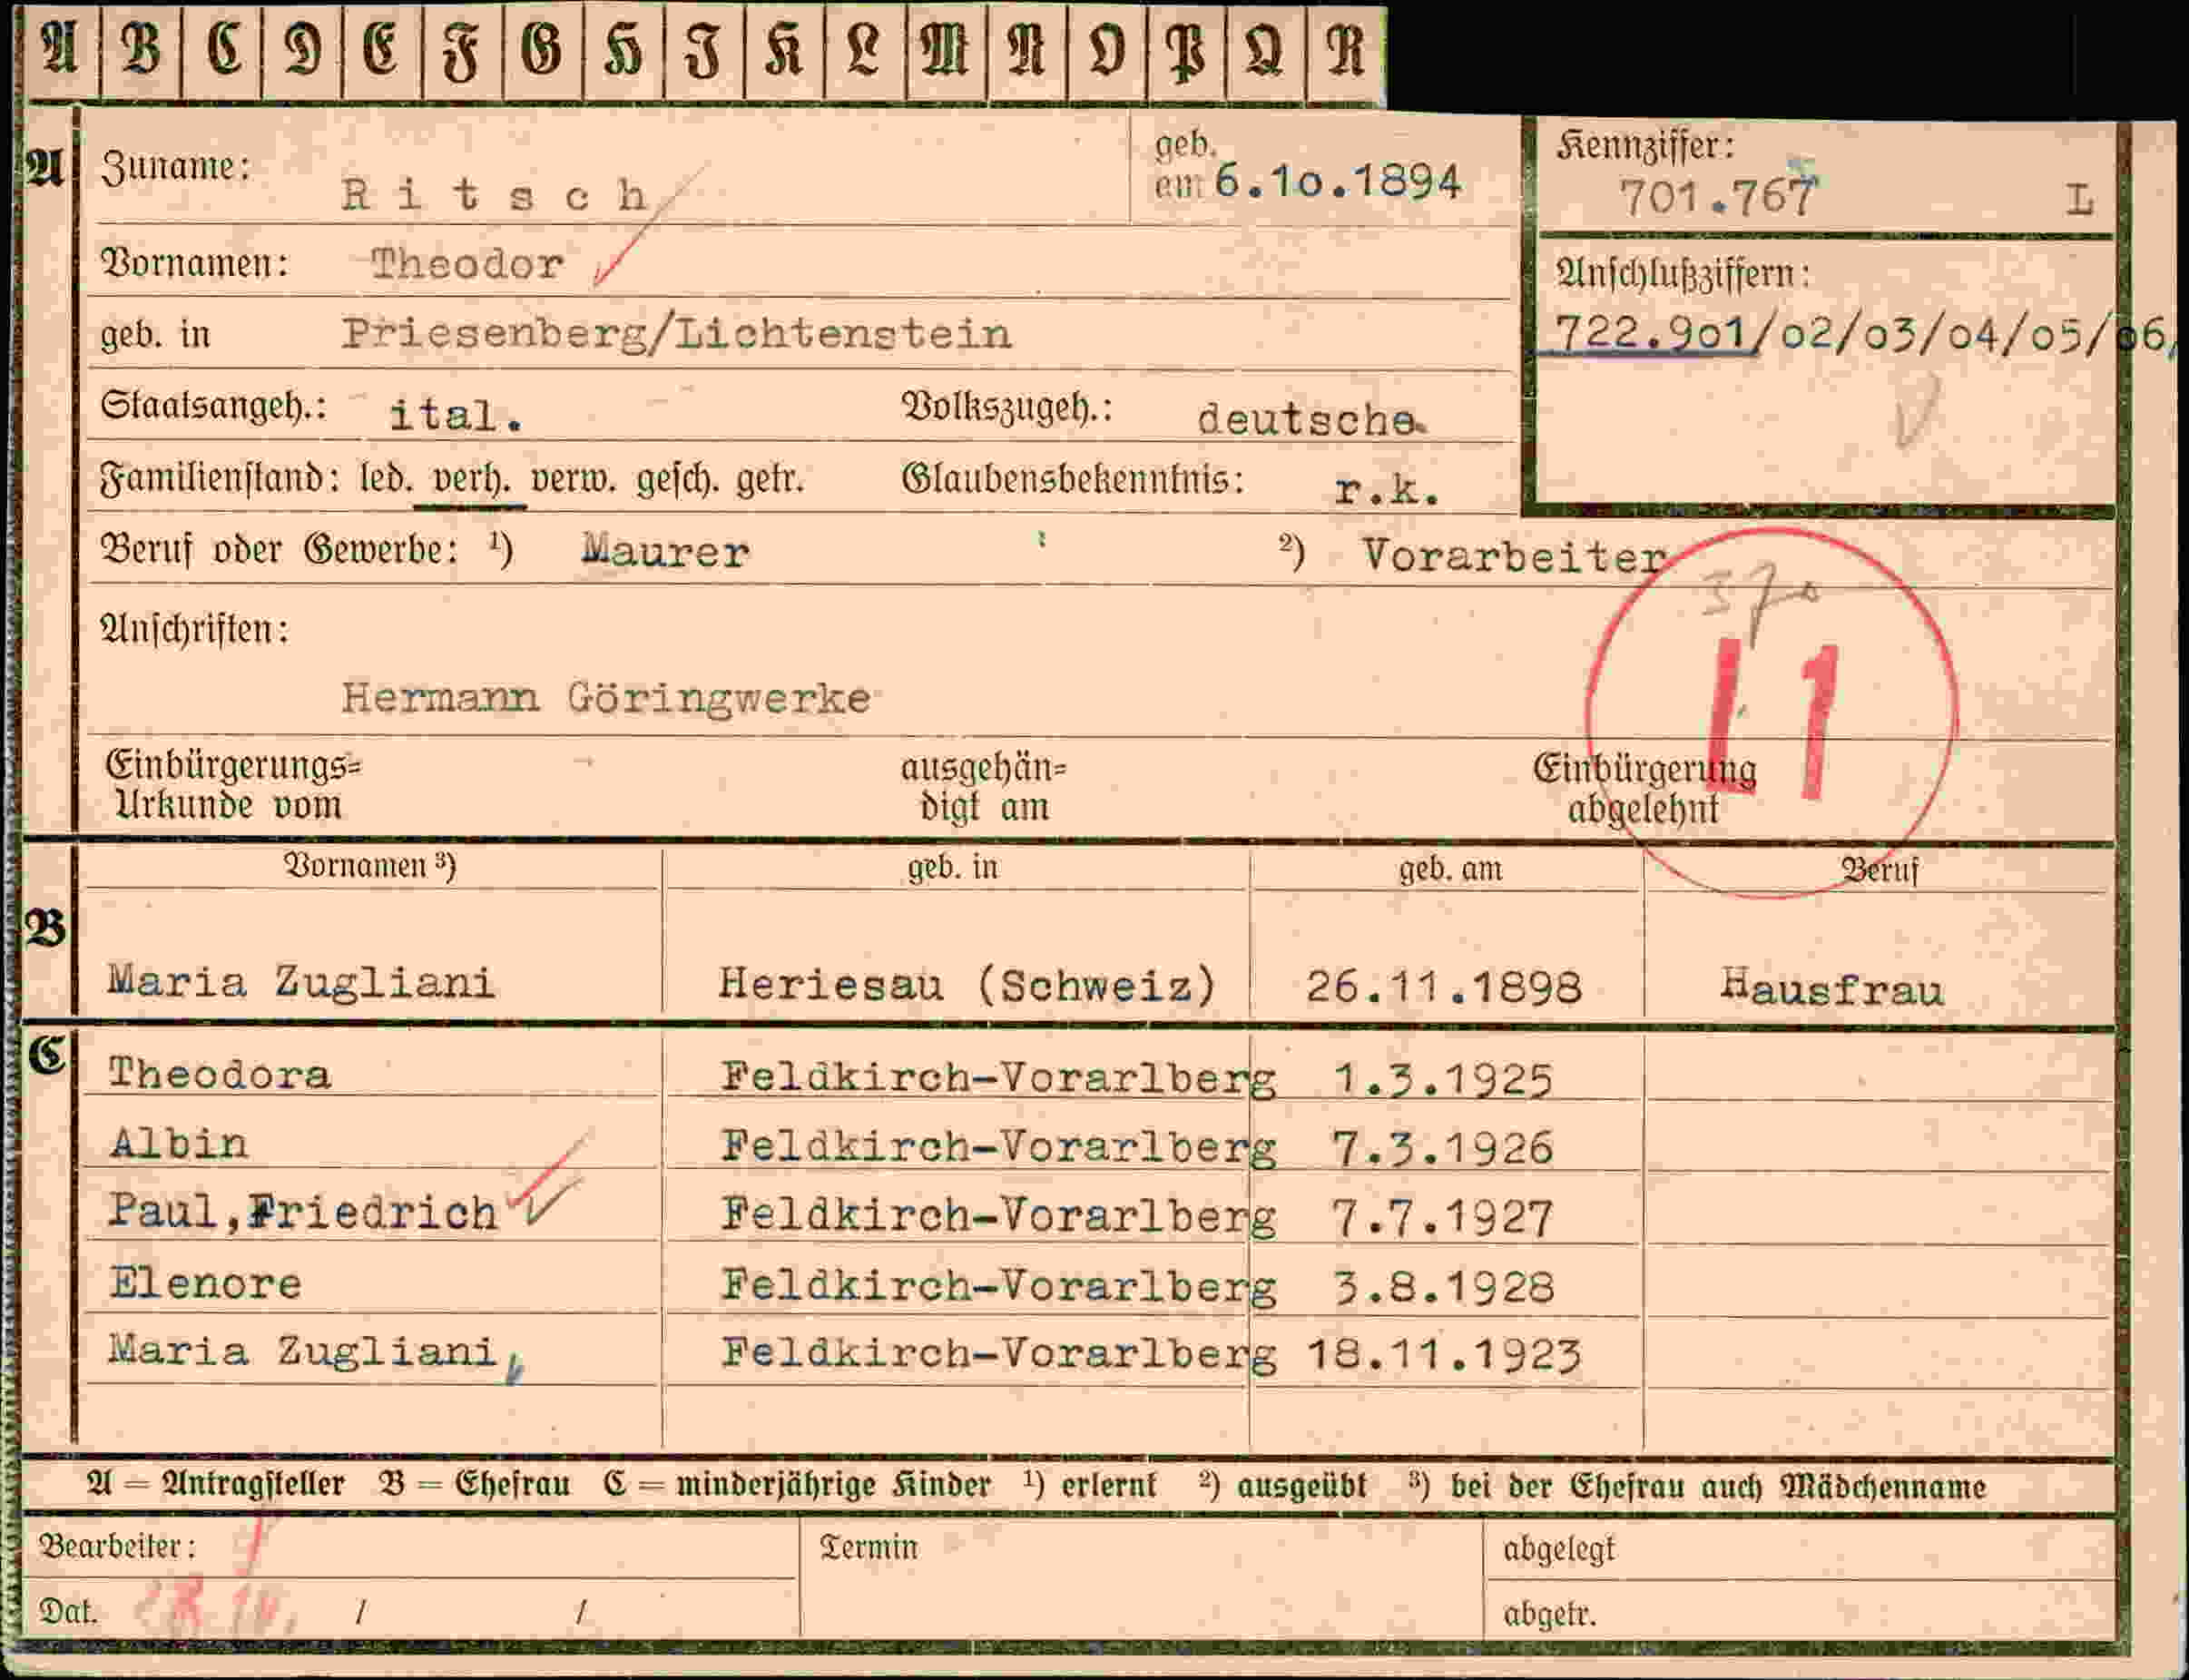 A B C D E F G H J K L M N O P Q R
A Zuname: Ritsch geb. am 6.10.1894 Kennziffer: 701.767 L
Vornamen: Theodor Anschlußziffern:
geb. in Priesenberg/Lichtenstein 722.901/02/03/04/05/06,
Staatsangeh.: ital. Volkszugeh.: deutsche
Familienstand: led. verh. verw. gesch. getr. Glaubensbekenntnis: r.k.
Beruf oder Gewerbe: ¹) Maurer ²) Vorarbeiter
Anschriften:
Hermann Göringwerke
L 1
Einbürgerungs= ausgehän= Einbürgerung
Urkunde vom digt am abgelehnt
Vornamen ³) geb. in geb. am Beruf
B Maria Zugliani Heriesau (Schweiz) 26.11.1898 Hausfrau
C Theodora Feldkirch-Vorarlberg 1.3.1925
Albin Feldkirch-Vorarlberg 7.3.1926
Paul,Friedrich Feldkirch-Vorarlberg 7.7.1927
Elenore Feldkirch-Vorarlberg 3.8.1928
Maria Zugliani, Feldkirch-Vorarlberg 18.11.1923
A = Antragsteller B = Ehefrau C = minderjährige Kinder ¹) erlernt ²) ausgeübt ³) bei der Ehefrau auch Mädchenname
Bearbeiter: Termin abgelegt
Dat. / / abgetr.